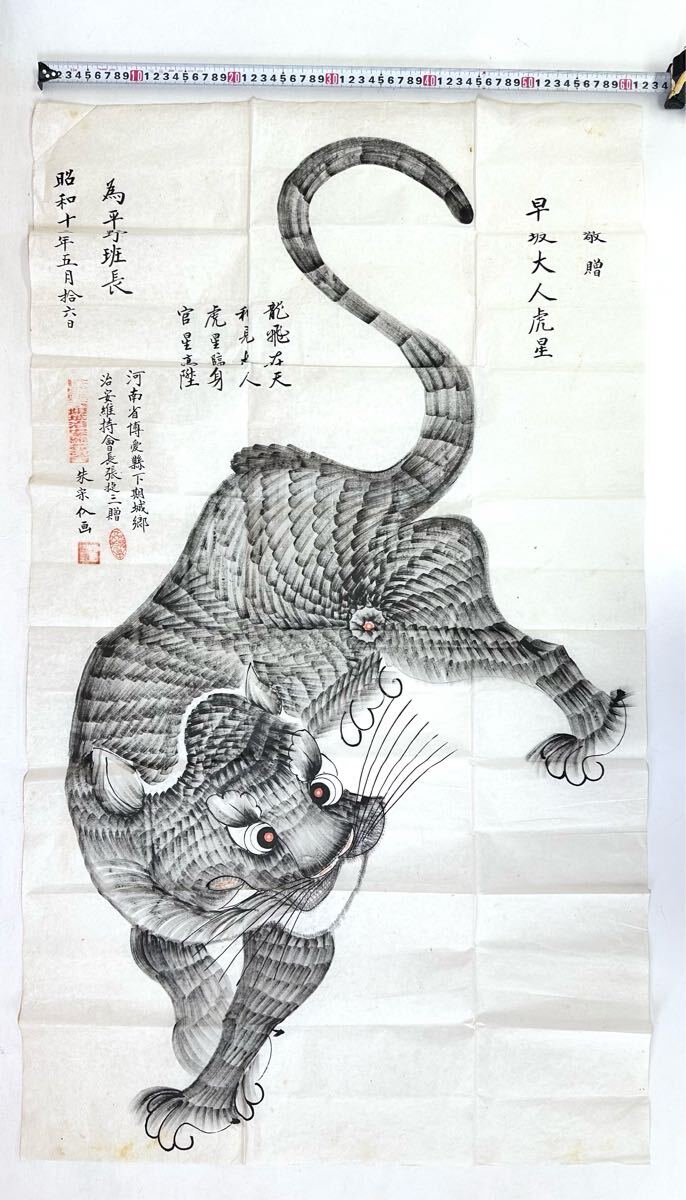 23456789 10 123456789 20 123456789 30 123456789 40 123456789 50 123456789 60 1234
敬贈
早坂大人虎星
龍飛在天
利見大人
虎星臨身
官星高陞
為平野班長
昭和十一年五月拾六日
河南省博愛縣下期城鄉
治安維持會長張捷三贈
朱宗仁画